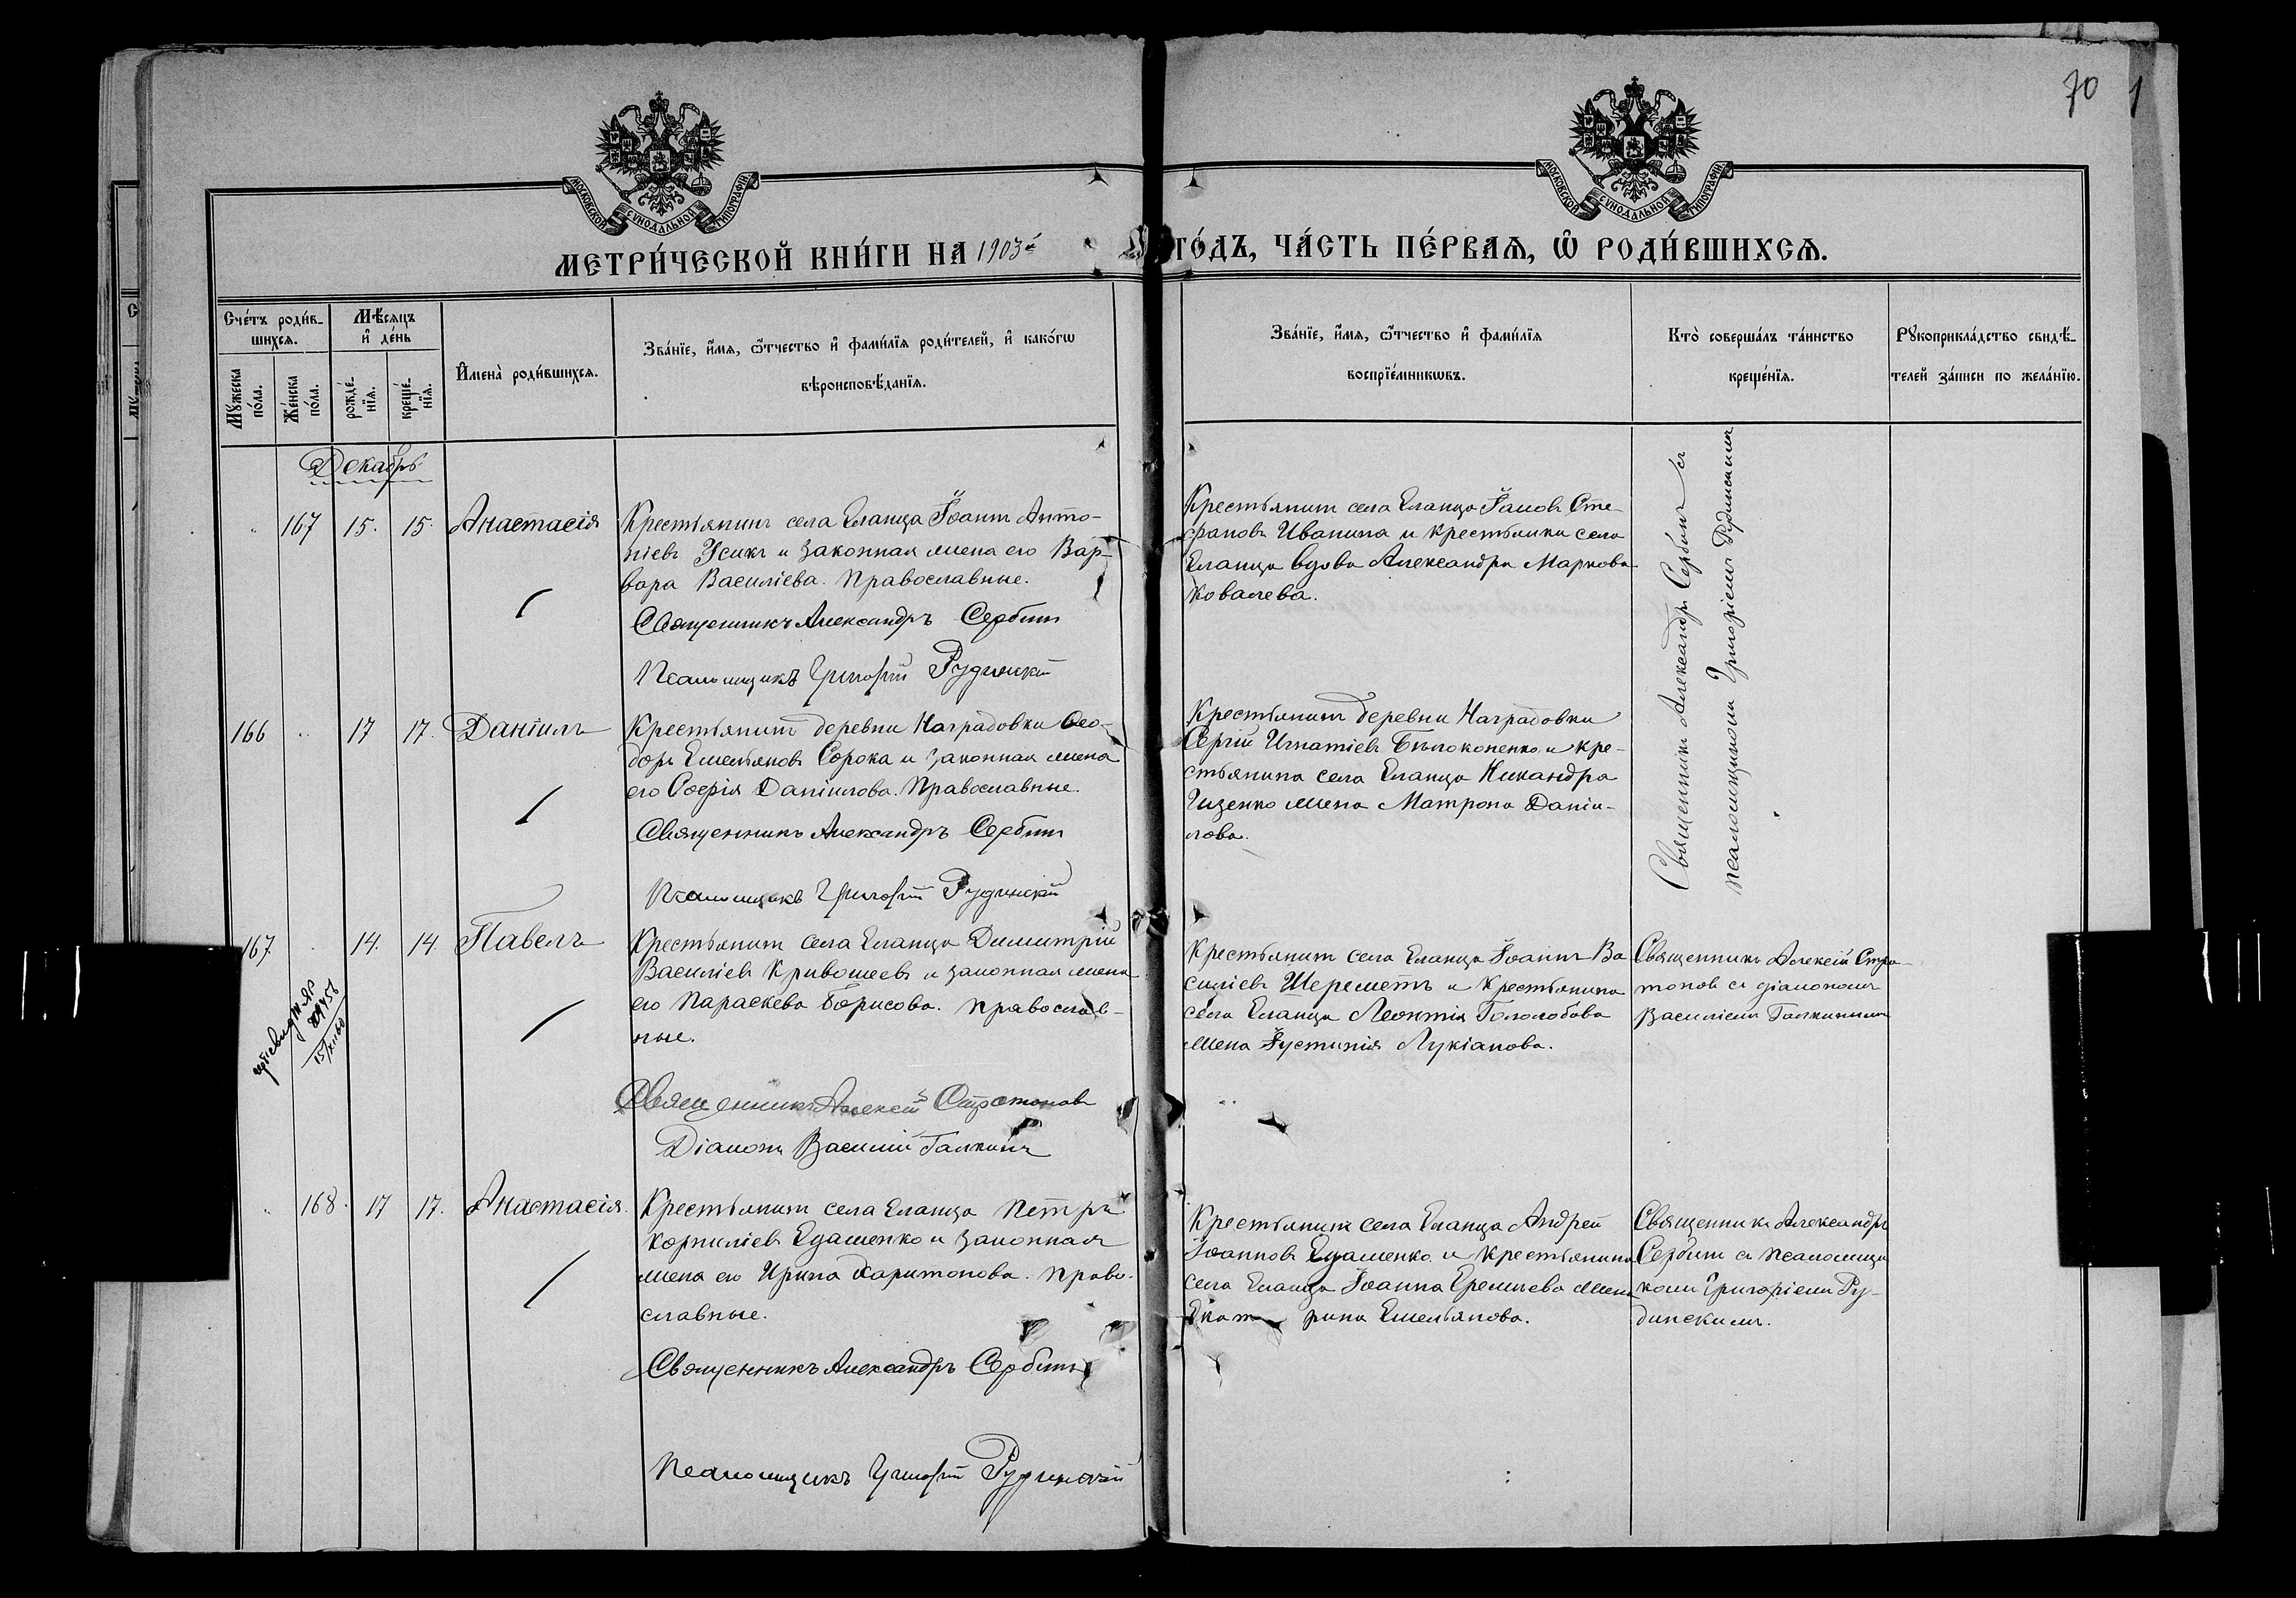 70
МОСКОВСКОЙ СѴНОДАЛЬНОЙ ТИПОГРАФІИ
МОСКОВСКОЙ СѴНОДАЛЬНОЙ ТИПОГРАФІИ
МЕТРИ́ЧЕСКОЙ КНИ́ГИ НА 1903й
ГО́ДЪ, ЧА́СТЬ ПЕ́РВАѦ, Ѽ РОДИ́ВШИХСѦ.
Сче́тъ роди́в-
шихсѧ.
Мѣ́сѧцъ
и҆ де́нь
Мꙋ́жеска
по́ла.
Же́нска
по́ла.
рожде́-
нїѧ.
креще́-
нїѧ.
И҆мена̀ роди́вшихсѧ.
Зва́нїе, и҆́мѧ, ѻ҆́тчество и҆ фами́лїѧ роди́телей, и҆ како́гѡ
вѣроисповѣ́данїѧ.
Зва́нїе, и҆́мѧ, ѻ҆́тчество и҆ фами́лїѧ
воспрїе́мникѡвъ.
Кто̀ соверша́лъ та́инство
креще́нїѧ.
Рꙋкоприкла́дство свидѣ́-
телей за́писи по жела́нїю.
Декабрь
167 15. 15. Анастасія
Крестьянинъ села Еланца Іоаннъ Анто-
ніевъ Усикъ и законная жена его Вар-
вара Василіева. Православные.
Священникъ Александръ Сербинъ
Псаломщикъ Григорій Рудинскій
Крестьянинъ села Еланца Іаковъ Сте-
фановъ Иванина и крестьянки села
Еланца вдова Александра Маркова
Ковалева.
Священникъ Александръ Сербинъ съ
псаломщикомъ Григоріемъ Рудинскимъ
166 17 17. Даніилъ
Крестьянинъ деревни Наградовки Ѳео-
доръ Емельяновъ Сорока и законная жена
его Софія Даніилова. Православные.
Священникъ Александръ Сербинъ
Псаломщикъ Григорій Рудинскій
Крестьянинъ деревни Наградовки
Сергій Игнатіевъ Бѣлоконенко и кре-
стьянина села Еланца Никандра
Гиценко жена Матрона Даніи-
лова.
167. 14. 14. Павелъ
Крестьянинъ села Еланца Димитрій
Василіевъ Кривошеевъ и законная жена
его Параскева Борисова. Православ-
ные.
Священникъ Алексій Стратоновъ
Діаконъ Василій Галкинъ
Крестьянинъ села Еланца Іоаннъ Ва-
силіевъ Шереметъ и Крестьянина
села Еланца Леонтія Гололобова
жена Іустинія Лукіанова.
Священникъ Алексій Стра-
тоновъ съ діакономъ
Василіемъ Галкинымъ
168. 17 17. Анастасія.
Крестьянинъ села Еланца Петръ
Корниліевъ Едаменко и законная
жена его Ирина Харитонова. Право-
славные.
Священникъ Александръ Сербинъ
Псаломщикъ Григорій Рудинскій
Крестьянинъ села Еланца Андрей
Іоанновъ Едаменко и крестьянина
села Еланца Іоанна Еремѣева жена
Екатерина Емельянова.
Священникъ Александръ
Сербинъ съ псаломщи-
комъ Григоріемъ Ру-
динскимъ.